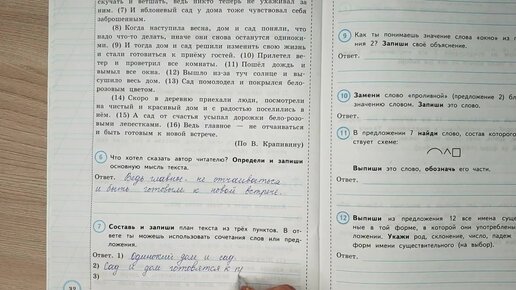 скучать и ветшать, ведь никто теперь не ухаживал за
ним. (7) И яблоневый сад у дома тоже чувствовал себя
заброшенным.
(8) Когда наступила весна, дом и сад поняли, что
надо что-то делать, иначе они снова останутся одиноки-
ми. (9) И тогда дом и сад решили изменить свою жизнь
и стали готовиться к приёму гостей. (10) Прилетел ве-
тер и проветрил все комнаты. (11) Пошёл дождь и
вымыл все окна. (12) Вышло из-за туч солнце и вы-
сушило весь дом. (13) Сад помолодел и покрылся бело-
розовым цветом.
(14) Скоро в деревню приехали люди, посмотрели
на чистый и красивый дом и с радостью поселились в
нём. (15) А сад от счастья усыпал дорожки бело-розо-
выми лепестками. (16) Ведь главное — не отчаиваться
и быть готовым к новой встрече.
(По В. Крапивину)
6 Что хотел сказать автор читателю? Определи и запиши
основную мысль текста.
Ответ. Ведь главное- не отчаиваться
и быть готовым к новой встрече.
7 Составь и запиши план текста из трёх пунктов. В от-
вете ты можешь использовать сочетания слов или пред-
ложения.
Ответ. 1) Одинокий дом и сад.
2) Сад и дом готовятся к п
3)
9 Как ты понимаешь значение слова
ния 2? Запиши своё объяснение.
Ответ.
10 Замени слово «проливной» (предложение 2) бл
значению словом. Запиши это слово.
Ответ.
11 В предложении 7 найди слово, состав которого
ствует схеме:
Выпиши это слово, обозначь его части.
Ответ.
12 Выпиши из предложения 12 все имена сущ
ные в той форме, в которой они употреблены
ложении. Укажи род, склонение, число, падеж
форм имени существительного (на выбор).
Ответ.